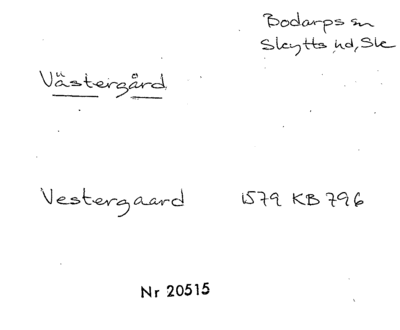 Bodarps sn
Skytts hd, Sk
Västergård
Vestergaard 1579 KB 796
Nr 20515